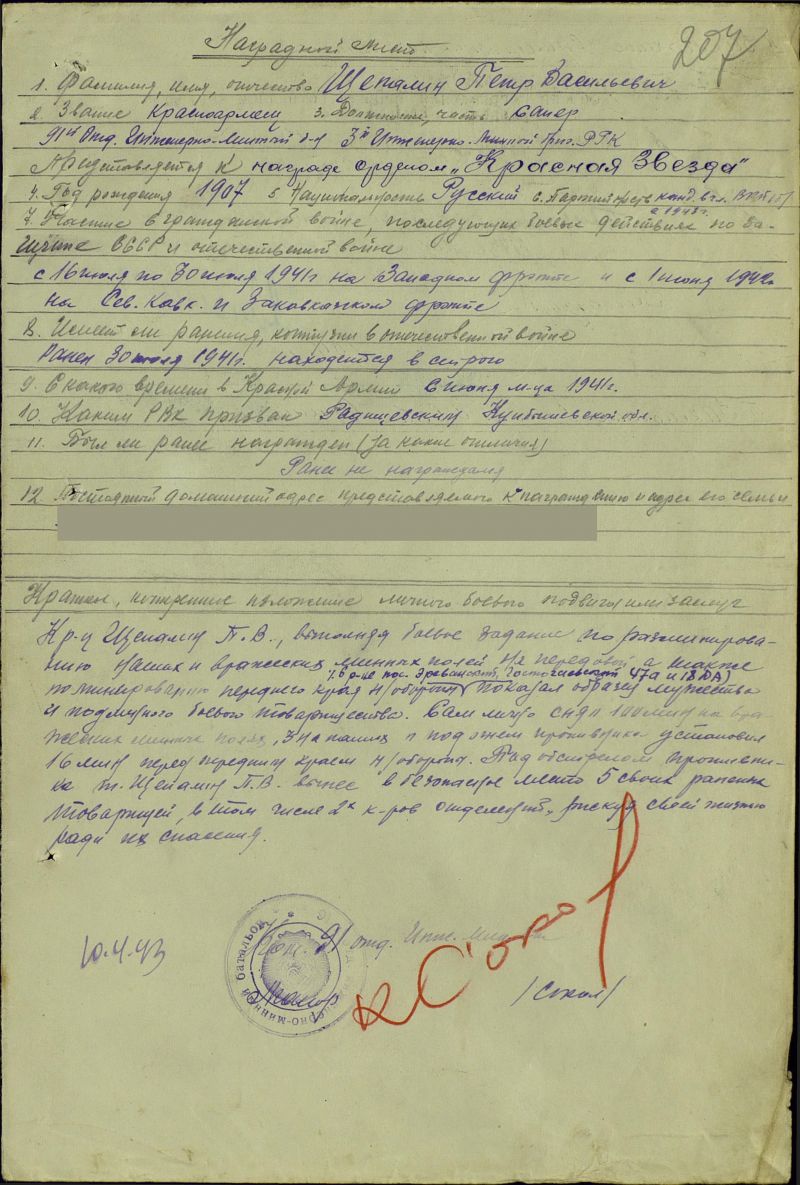 207
Наградной лист
1. Фамилия, имя, отчество Щепалин Петр Васильевич
2. Звание Красноармеец 3. Должность, часть Сапер
91й Отд. Инженерно-Минный б-н 3й Инженерно-Минной бриг. РГК
Представляется к награде орденом „Красная Звезда"
4. Год рождения 1907 5 Национальность Русский 6. Партийность канд. в чл. ВКП(б)
с 1943г.
7. Участие в гражданской войне, последующих боевых действиях по за-
щите СССР и отечественной войне
с 16 июля по 30 июля 1941г на Западном фронте и с 1 июня 1942г
на Сев. Кавк. и Закавказском фронте
8. Имеет ли ранения, контузии в отечественной войне
Ранен 30 июля 1941г. находится в строю
9. С какого времени в Красной Армии с июня м-ца 1941г.
10. Каким РВК призван Радищевским Куйбышевской обл.
11. Был ли ранее награжден (за какие отличия)
Ранее не награждался
12 Постоянный домашний адрес представляемого к награждению и адрес его семьи
Краткое, конкретное изложение личного боевого подвига или заслуг
Кр-ц Щепалин П.В., выполняя боевое задание по разминирова-
нию наших и вражеских минных полей на передовой а также
(в р-не пос. 47А и 18 ДА)
по минированию переднего края н/обороны показал образец мужества
и подлинного боевого товарищества. Сам лично снял 100 мин на вра-
жеских минных полях, и под огнем противника установил
16 мин перед передним краем н/обороны. Под обстрелом противни-
ка т. Щепалин П.В. вынес в безопасное место 5 своих раненых
товарищей, в том числе 2х к-ров отделений, рискуя своей жизнью
ради их спасения.
10.4.43
Ком. 91 отд. Инж. Мин
Майор
/Сокол/
батальон